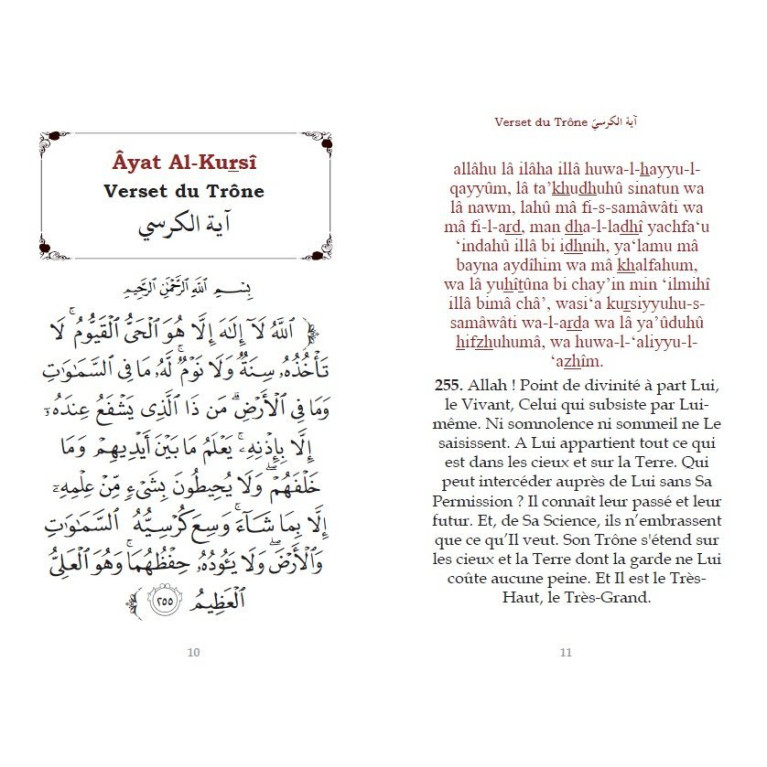 Âyat Al-Kursî
Verset du Trône
آية الكرسي
بِسْمِ اللَّهِ الرَّحْمَٰنِ الرَّحِيمِ
اللَّهُ لَا إِلَٰهَ إِلَّا هُوَ الْحَيُّ الْقَيُّومُ ۚ لَا
تَأْخُذُهُ سِنَةٌ وَلَا نَوْمٌ ۚ لَهُ مَا فِي السَّمَاوَاتِ
وَمَا فِي الْأَرْضِ ۗ مَن ذَا الَّذِي يَشْفَعُ عِندَهُ
إِلَّا بِإِذْنِهِ ۚ يَعْلَمُ مَا بَيْنَ أَيْدِيهِمْ وَمَا
خَلْفَهُمْ ۖ وَلَا يُحِيطُونَ بِشَيْءٍ مِّنْ عِلْمِهِ
إِلَّا بِمَا شَاءَ ۚ وَسِعَ كُرْسِيُّهُ السَّمَاوَاتِ
وَالْأَرْضَ ۖ وَلَا يَئُودُهُ حِفْظُهُمَا ۚ وَهُوَ الْعَلِيُّ
الْعَظِيمُ ٢٥٥
10
Verset du Trône آية الكرسيّ
allâhu lâ ilâha illâ huwa-l-hayyu-l-
qayyûm, lâ ta’khudhuhû sinatun wa
lâ nawm, lahû mâ fi-s-samâwâti wa
mâ fi-l-ard, man dha-l-ladhî yachfa‘u
‘indahû illâ bi idhnih, ya‘lamu mâ
bayna aydîhim wa mâ khalfahum,
wa lâ yuhîtûna bi chay’in min ‘ilmihî
illâ bimâ châ’, wasi‘a kursiyyuhu-s-
samâwâti wa-l-arda wa lâ ya’ûduhû
hifzhuhumâ, wa huwa-l-‘aliyyu-l-
‘azhîm.
255. Allah ! Point de divinité à part Lui,
le Vivant, Celui qui subsiste par Lui-
même. Ni somnolence ni sommeil ne Le
saisissent. A Lui appartient tout ce qui
est dans les cieux et sur la Terre. Qui
peut intercéder auprès de Lui sans Sa
Permission ? Il connaît leur passé et leur
futur. Et, de Sa Science, ils n’embrassent
que ce qu’Il veut. Son Trône s'étend sur
les cieux et la Terre dont la garde ne Lui
coûte aucune peine. Et Il est le Très-
Haut, le Très-Grand.
11